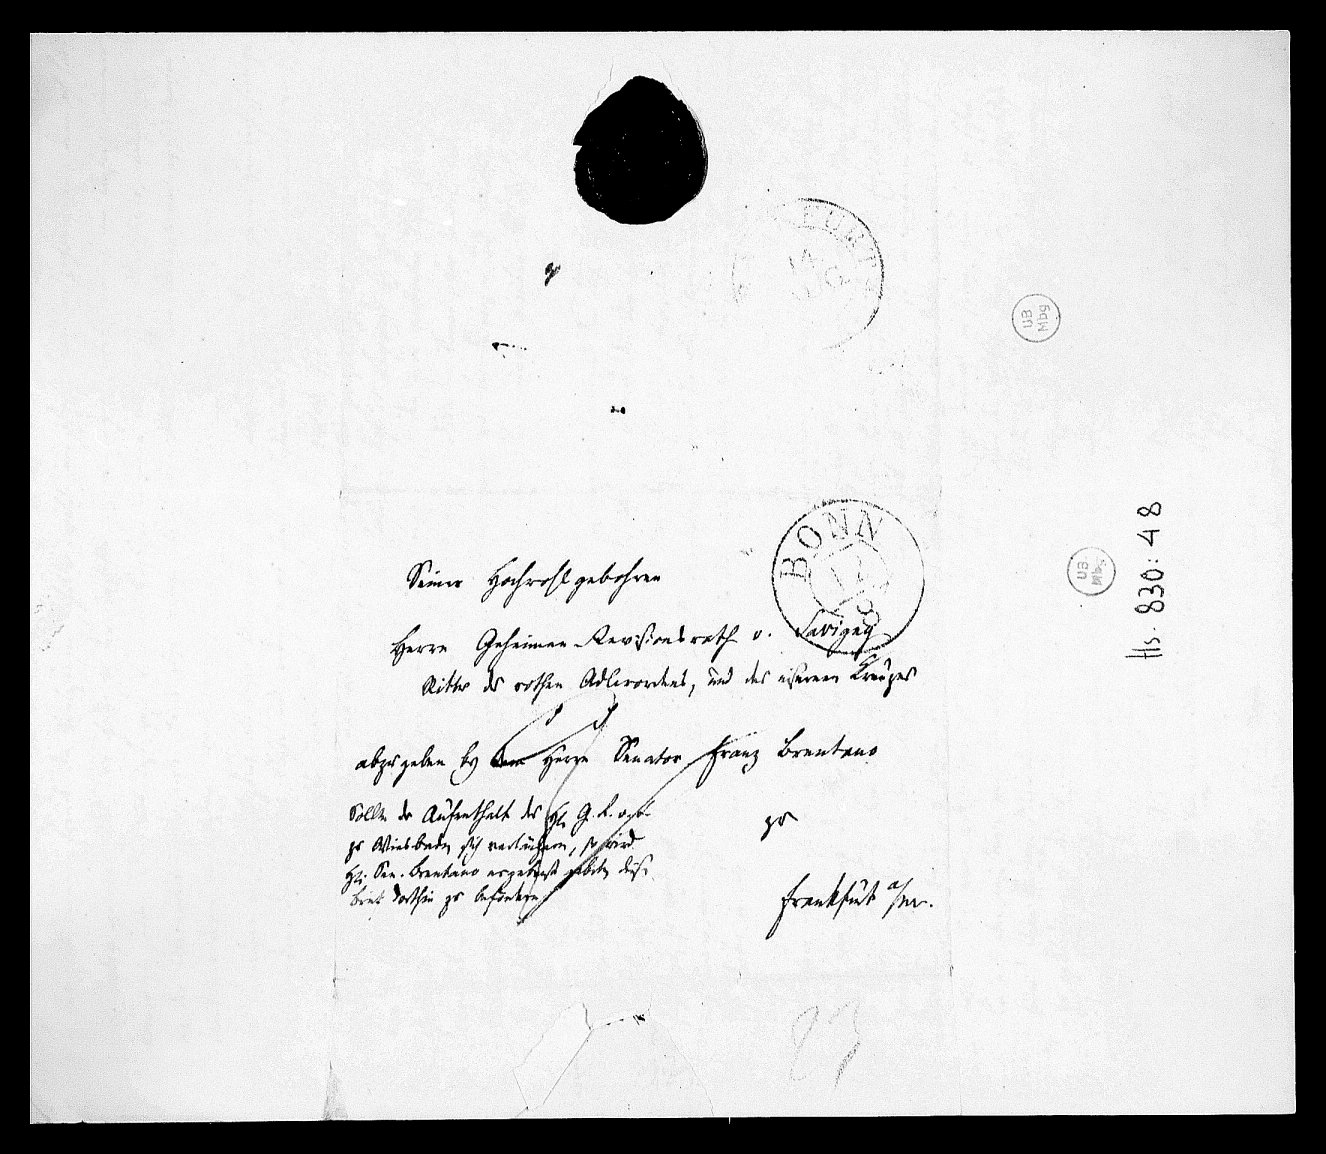 FURT
14
BONN
12
8
UB
Mbg
UB
Mbg
Hs. 830: 48
Seiner Hochwohlgebohren
Herrn Geheimen Revisionsrath v. Savigny
Ritter des rothen Adlerordens, und des eisernen Kreuzes
abzugeben bey dem Herrn Senator Franz Brentano
Sollte der Aufenthalt des H. G. R.
zu Wiesbaden sich verlängern, so wird
H. Sen. Brentano ergebenst gebeten diesen
Brief dorthin zu befördern
zu
Frankfurt a/m.